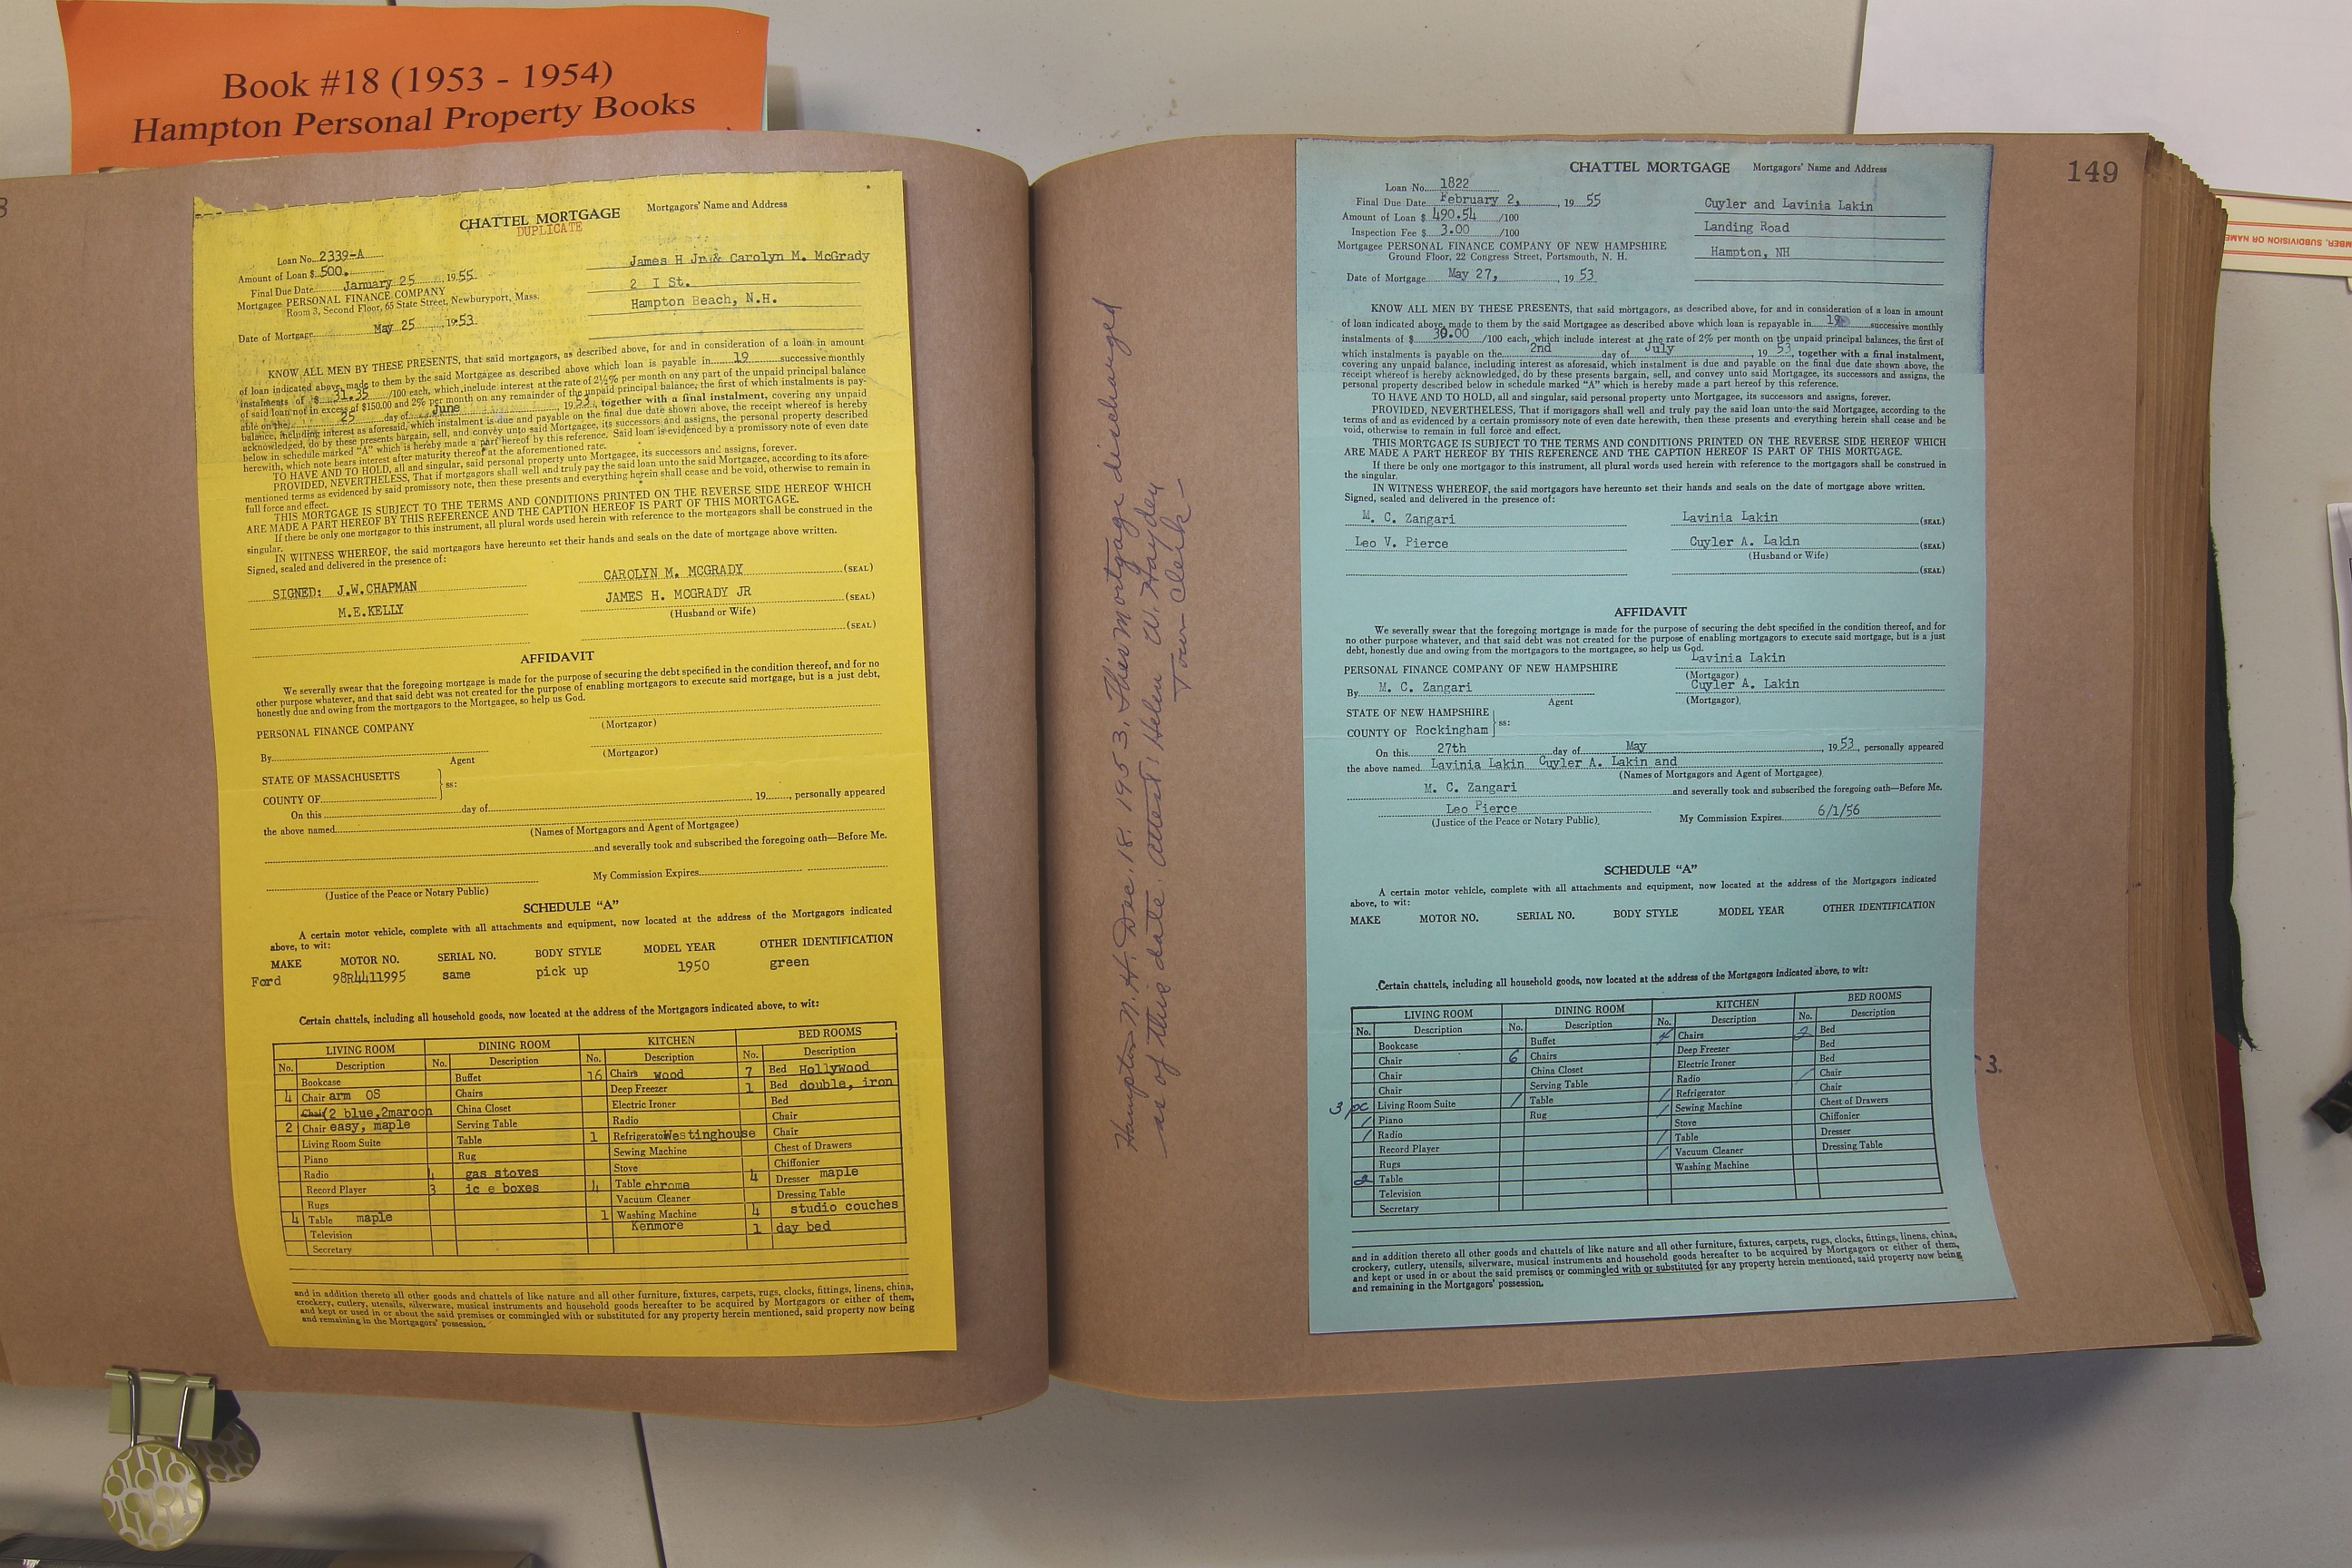 Book #18 (1953 - 1954)
Hampton Personal Property Books
CHATTEL MORTGAGE
DUPLICATE
Mortgagors' Name and Address
Loan No. 2339-A
Amount of Loan $ 500.
Final Due Date January 25 1955
Mortgagee PERSONAL FINANCE COMPANY
Room 3, Second Floor, 65 State Street, Newburyport, Mass.
Date of Mortgage May 25 1953
James H Jr & Carolyn M. McGrady
2 I St.
Hampton Beach, N.H.
KNOW ALL MEN BY THESE PRESENTS, that said mortgagors, as described above, for and in consideration of a loan in amount
of loan indicated above, made to them by the said Mortgagee as described above which loan is payable in 19 successive monthly
instalments of $ 31.35 /100 each, which include interest at the rate of 2½% per month on any part of the unpaid principal balance
of said loan not in excess of $150.00 and 2% per month on any remainder of the unpaid principal balance, the first of which instalments is pay-
able on the 25 day of June, 1953, together with a final instalment, covering any unpaid
balance, including interest as aforesaid, which instalment is due and payable on the final due date shown above, the receipt whereof is hereby
acknowledged, do by these presents bargain, sell, and convey unto said Mortgagee, its successors and assigns, the personal property described
below in schedule marked "A" which is hereby made a part hereof by this reference. Said loan is evidenced by a promissory note of even date
herewith, which note bears interest after maturity thereof at the aforementioned rate.
TO HAVE AND TO HOLD, all and singular, said personal property unto Mortgagee, its successors and assigns, forever.
PROVIDED, NEVERTHELESS, That if mortgagors shall well and truly pay the said loan unto the said Mortgagee, according to its afore-
mentioned terms as evidenced by said promissory note, then these presents and everything herein shall cease and be void, otherwise to remain in
full force and effect.
THIS MORTGAGE IS SUBJECT TO THE TERMS AND CONDITIONS PRINTED ON THE REVERSE SIDE HEREOF WHICH
ARE MADE A PART HEREOF BY THIS REFERENCE AND THE CAPTION HEREOF IS PART OF THIS MORTGAGE.
If there be only one mortgagor to this instrument, all plural words used herein with reference to the mortgagors shall be construed in the
singular.
IN WITNESS WHEREOF, the said mortgagors have hereunto set their hands and seals on the date of mortgage above written.
Signed, sealed and delivered in the presence of:
SIGNED: J.W.CHAPMAN CAROLYN M. MCGRADY (SEAL)
M.E.KELLY JAMES H. MCGRADY JR (SEAL)
(Husband or Wife)
(SEAL)
AFFIDAVIT
We severally swear that the foregoing mortgage is made for the purpose of securing the debt specified in the condition thereof, and for no
other purpose whatever, and that said debt was not created for the purpose of enabling mortgagors to execute said mortgage, but is a just debt,
honestly due and owing from the mortgagors to the Mortgagee, so help us God.
PERSONAL FINANCE COMPANY
(Mortgagor)
By Agent
(Mortgagor)
STATE OF MASSACHUSETTS
COUNTY OF ss:
On this day of 19, personally appeared
the above named
(Names of Mortgagors and Agent of Mortgagee)
and severally took and subscribed the foregoing oath—Before Me.
My Commission Expires
(Justice of the Peace or Notary Public)
SCHEDULE "A"
A certain motor vehicle, complete with all attachments and equipment, now located at the address of the Mortgagors indicated
above, to wit:
MAKE MOTOR NO. SERIAL NO. BODY STYLE MODEL YEAR OTHER IDENTIFICATION
Ford 98R4411995 same pick up 1950 green
Certain chattels, including all household goods, now located at the address of the Mortgagors indicated above, to wit:
LIVING ROOM DINING ROOM KITCHEN BED ROOMS
No. Description No. Description No. Description No. Description
Bookcase Buffet 16 Chairs wood 7 Bed Hollywood
4 Chair arm OS Chairs Deep Freezer 1 Bed double, iron
Chair (2 blue,2maroon China Closet Electric Ironer Bed
2 Chair easy, maple Serving Table Radio Chair
Living Room Suite Table 1 Refrigerator Westinghouse Chair
Piano Rug Sewing Machine Chest of Drawers
Radio 4 gas stoves Stove Chiffonier
Record Player 3 ic e boxes 4 Table chrome 4 Dresser maple
Rugs Vacuum Cleaner Dressing Table
4 Table maple 1 Washing Machine 4 studio couches
Television Kenmore 1 day bed
Secretary
and in addition thereto all other goods and chattels of like nature and all other furniture, fixtures, carpets, rugs, clocks, fittings, linens, china,
crockery, cutlery, utensils, silverware, musical instruments and household goods hereafter to be acquired by Mortgagors or either of them,
and kept or used in or about the said premises or commingled with or substituted for any property herein mentioned, said property now being
and remaining in the Mortgagors' possession.
Hampton N. H. Dec. 18, 1953, This mortgage discharged
as of this date. Attest; Helen W. Hayden
Town Clerk
149
CHATTEL MORTGAGE Mortgagors' Name and Address
Loan No. 1822
Final Due Date February 2, 1955
Amount of Loan $ 490.54 /100
Inspection Fee $ 3.00 /100
Mortgagee PERSONAL FINANCE COMPANY OF NEW HAMPSHIRE
Ground Floor, 22 Congress Street, Portsmouth, N. H.
Date of Mortgage May 27, 1953
Cuyler and Lavinia Lakin
Landing Road
Hampton, NH
KNOW ALL MEN BY THESE PRESENTS, that said mortgagors, as described above, for and in consideration of a loan in amount
of loan indicated above, made to them by the said Mortgagee as described above which loan is repayable in 19 successive monthly
instalments of $ 30.00 /100 each, which include interest at the rate of 2% per month on the unpaid principal balances, the first of
which instalments is payable on the 2nd day of July, 1953, together with a final instalment,
covering any unpaid balance, including interest as aforesaid, which instalment is due and payable on the final due date shown above, the
receipt whereof is hereby acknowledged, do by these presents bargain, sell, and convey unto said Mortgagee, its successors and assigns, the
personal property described below in schedule marked "A" which is hereby made a part hereof by this reference.
TO HAVE AND TO HOLD, all and singular, said personal property unto Mortgagee, its successors and assigns, forever.
PROVIDED, NEVERTHELESS, That if mortgagors shall well and truly pay the said loan unto the said Mortgagee, according to the
terms of and as evidenced by a certain promissory note of even date herewith, then these presents and everything herein shall cease and be
void, otherwise to remain in full force and effect.
THIS MORTGAGE IS SUBJECT TO THE TERMS AND CONDITIONS PRINTED ON THE REVERSE SIDE HEREOF WHICH
ARE MADE A PART HEREOF BY THIS REFERENCE AND THE CAPTION HEREOF IS PART OF THIS MORTGAGE.
If there be only one mortgagor to this instrument, all plural words used herein with reference to the mortgagors shall be construed in
the singular.
IN WITNESS WHEREOF, the said mortgagors have hereunto set their hands and seals on the date of mortgage above written.
Signed, sealed and delivered in the presence of:
M. C. Zangari Lavinia Lakin (SEAL)
Leo V. Pierce Cuyler A. Lakin (SEAL)
(Husband or Wife)
(SEAL)
AFFIDAVIT
We severally swear that the foregoing mortgage is made for the purpose of securing the debt specified in the condition thereof, and for
no other purpose whatever, and that said debt was not created for the purpose of enabling mortgagors to execute said mortgage, but is a just
debt, honestly due and owing from the mortgagors to the mortgagee, so help us God.
PERSONAL FINANCE COMPANY OF NEW HAMPSHIRE Lavinia Lakin
(Mortgagor)
By M. C. Zangari Cuyler A. Lakin
Agent (Mortgagor)
STATE OF NEW HAMPSHIRE
COUNTY OF Rockingham ss:
On this 27th day of May, 1953, personally appeared
the above named Lavinia Lakin Cuyler A. Lakin and
(Names of Mortgagors and Agent of Mortgagee)
M. C. Zangari and severally took and subscribed the foregoing oath—Before Me.
Leo Pierce My Commission Expires 6/1/56
(Justice of the Peace or Notary Public)
SCHEDULE "A"
A certain motor vehicle, complete with all attachments and equipment, now located at the address of the Mortgagors indicated
above, to wit:
MAKE MOTOR NO. SERIAL NO. BODY STYLE MODEL YEAR OTHER IDENTIFICATION
Certain chattels, including all household goods, now located at the address of the Mortgagors indicated above, to wit:
LIVING ROOM DINING ROOM KITCHEN BED ROOMS
No. Description No. Description No. Description No. Description
Bookcase Buffet Chairs 2 Bed
Chair 6 Chairs Deep Freezer Bed
Chair China Closet Electric Ironer Bed
Chair Serving Table Radio / Chair
3 pc Living Room Suite / Table / Refrigerator Chair
/ Piano Rug / Sewing Machine Chest of Drawers
/ Radio Stove Chiffonier
Record Player / Table Dresser
Rugs / Vacuum Cleaner Dressing Table
2 Table Washing Machine
Television
Secretary
and in addition thereto all other goods and chattels of like nature and all other furniture, fixtures, carpets, rugs, clocks, fittings, linens, china,
crockery, cutlery, utensils, silverware, musical instruments and household goods hereafter to be acquired by Mortgagors or either of them,
and kept or used in or about the said premises or commingled with or substituted for any property herein mentioned, said property now being
and remaining in the Mortgagors' possession.
3.
SUBDIVISION OR NAME